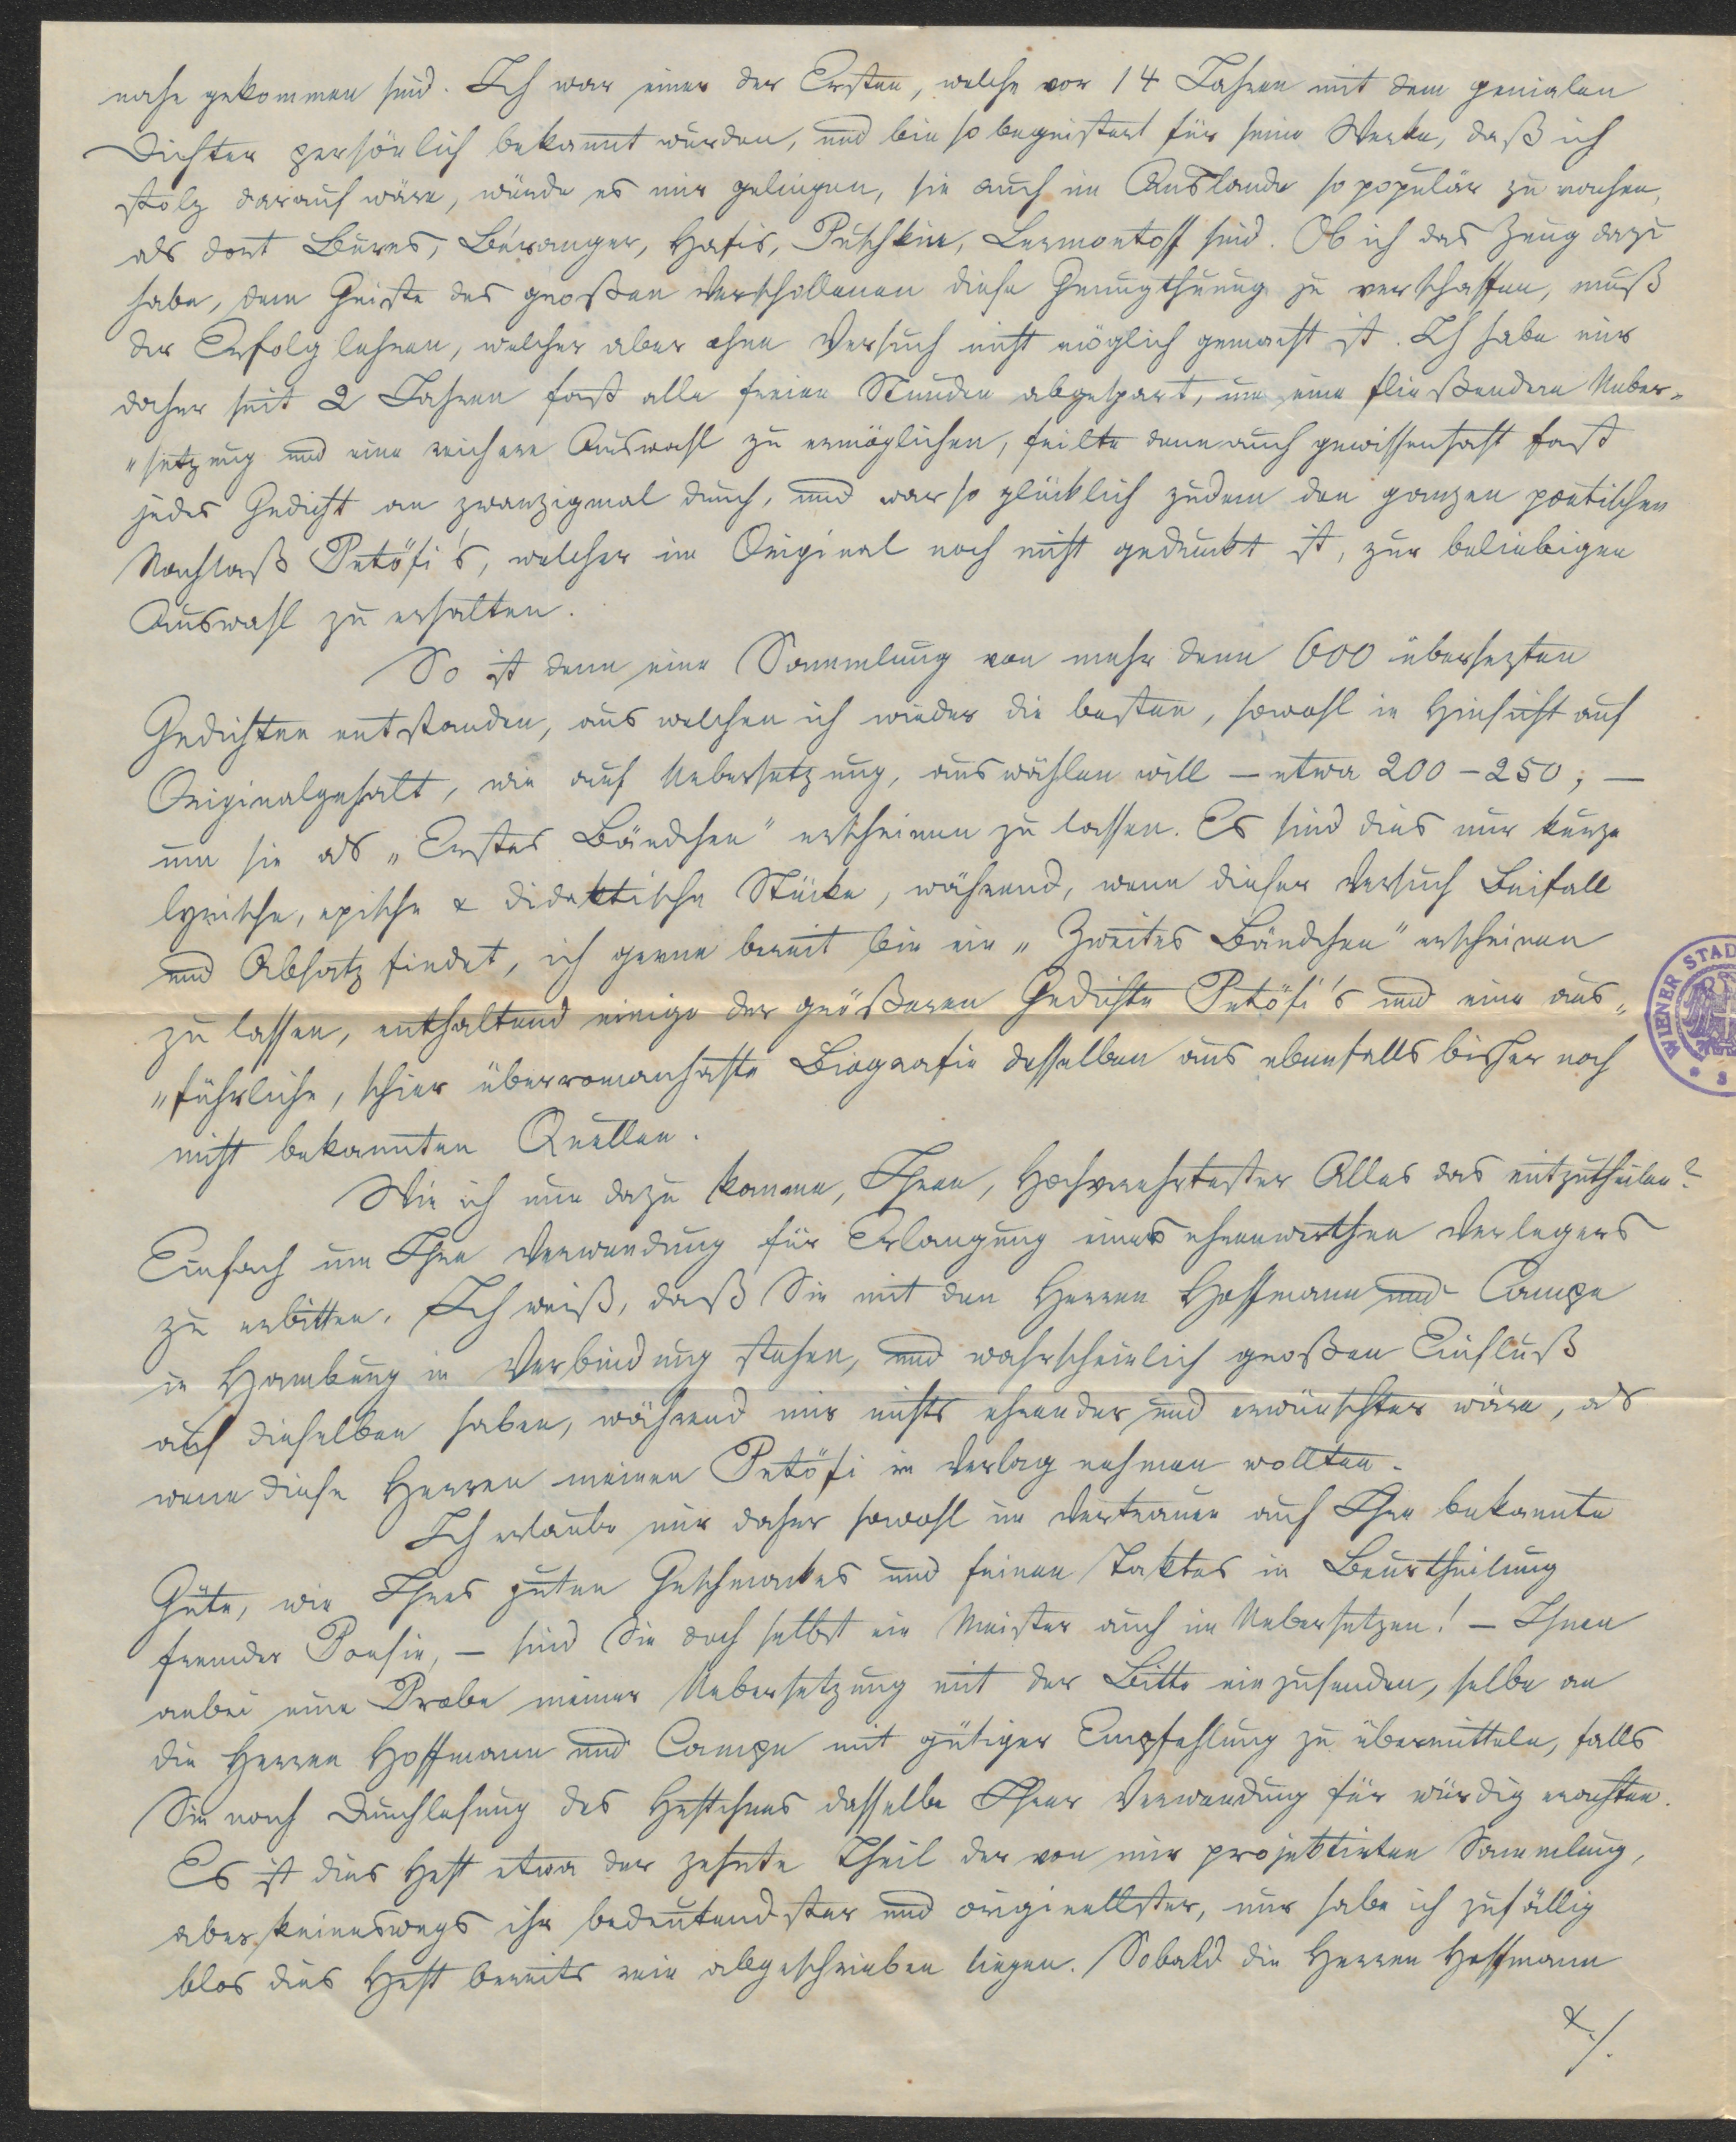 nahe gekommen sind. Ich war einer der Ersten, welche vor 14 Jahren mit dem genialen
Dichter persönlich bekannt wurden, und bin so begeistert für seine Werke, daß ich
stolz darauf wäre, würde es mir gelingen, sie auch im Auslande so populär zu machen,
als dort Burns, Béranger, Hafis, Puschkin, Lermontoff sind. Ob ich das Zeug dazu
habe, dem Geiste des großen Verschollenen diese Genugthuung zu verschaffen, muß
der Erfolg lehren, welcher aber ohne Versuch nicht möglich gemacht ist. Ich habe mir
daher seit 2 Jahren fast alle freien Stunden abgespart, um eine fließendere Ueber-
"setzung und eine reichere Auswahl zu ermöglichen, feilte denn auch gewissenhaft fast
jedes Gedicht an zwanzigmal durch, und war so glücklich zudem den ganzen poetischen
Nachlaß Petöfi's, welcher im Original noch nicht gedruckt ist, zur beliebigen
Auswahl zu erhalten.
So ist denn eine Sammlung von mehr denn 600 übersezten
Gedichten entstanden, aus welchen ich wieder die besten, sowohl in Hinsicht auf
Originalgehalt, wie auf Uebersetzung, auswählen will – etwa 200-250; –
um sie als „Erstes Bändchen" erscheinen zu lassen. Es sind dies nur kurze
lyrische, epische & didaktische Stücke, während, wenn dieser Versuch Beifall
und Absatz findet, ich gerne bereit bin ein „Zweites Bändchen" erscheinen
zu lassen, enthaltend einige der größeren Gedichte Petöfi's und eine aus„
"führliche, schier überromanhafte Biografie desselben aus ebenfalls bisher noch
nicht bekannten Quellen.
Wie ich nun dazu komme, Ihnen, Hochverehrtester Alles das mitzutheilen?
Einfach um Ihre Verwendung für Erlangung eines ehrenwerthen Verlegers
zu erbitten. Ich weiß, daß Sie mit den Herren Hoffmann und Campe
in Hamburg in Verbindung stehen, und wahrscheinlich großen Einfluß
auf dieselben haben, während mir nichts ehrender und erwünschter wäre, als
wenn diese Herren meinen Petöfi in Verlag nehmen wollten.
Ich erlaube mir daher sowohl im Vertrauen auf Ihre bekannte
Güte, wie Ihres guten Geschmackes und feinen Taktes in Beurtheilung
fremder Poesie, – sind Sie doch selbst ein Meister auch im Uebersetzen! – Ihnen
anbei eine Probe meiner Uebersetzung mit der Bitte einzusenden, selbe an
die Herren Hoffmann und Campe mit gütiger Empfehlung zu übermitteln, falls
Sie nach Durchlesung des Heftchens dasselbe Ihrer Verwendung für würdig erachten.
Es ist dies Heft etwa der zehnte Theil der von mir projektirten Sammlung,
aber keineswegs ihr bedeutendster und originellster, nur habe ich zufällig
blos dies Heft bereits rein abgeschrieben liegen. Sobald die Herren Hoffmann
&./.
WIENER STAD